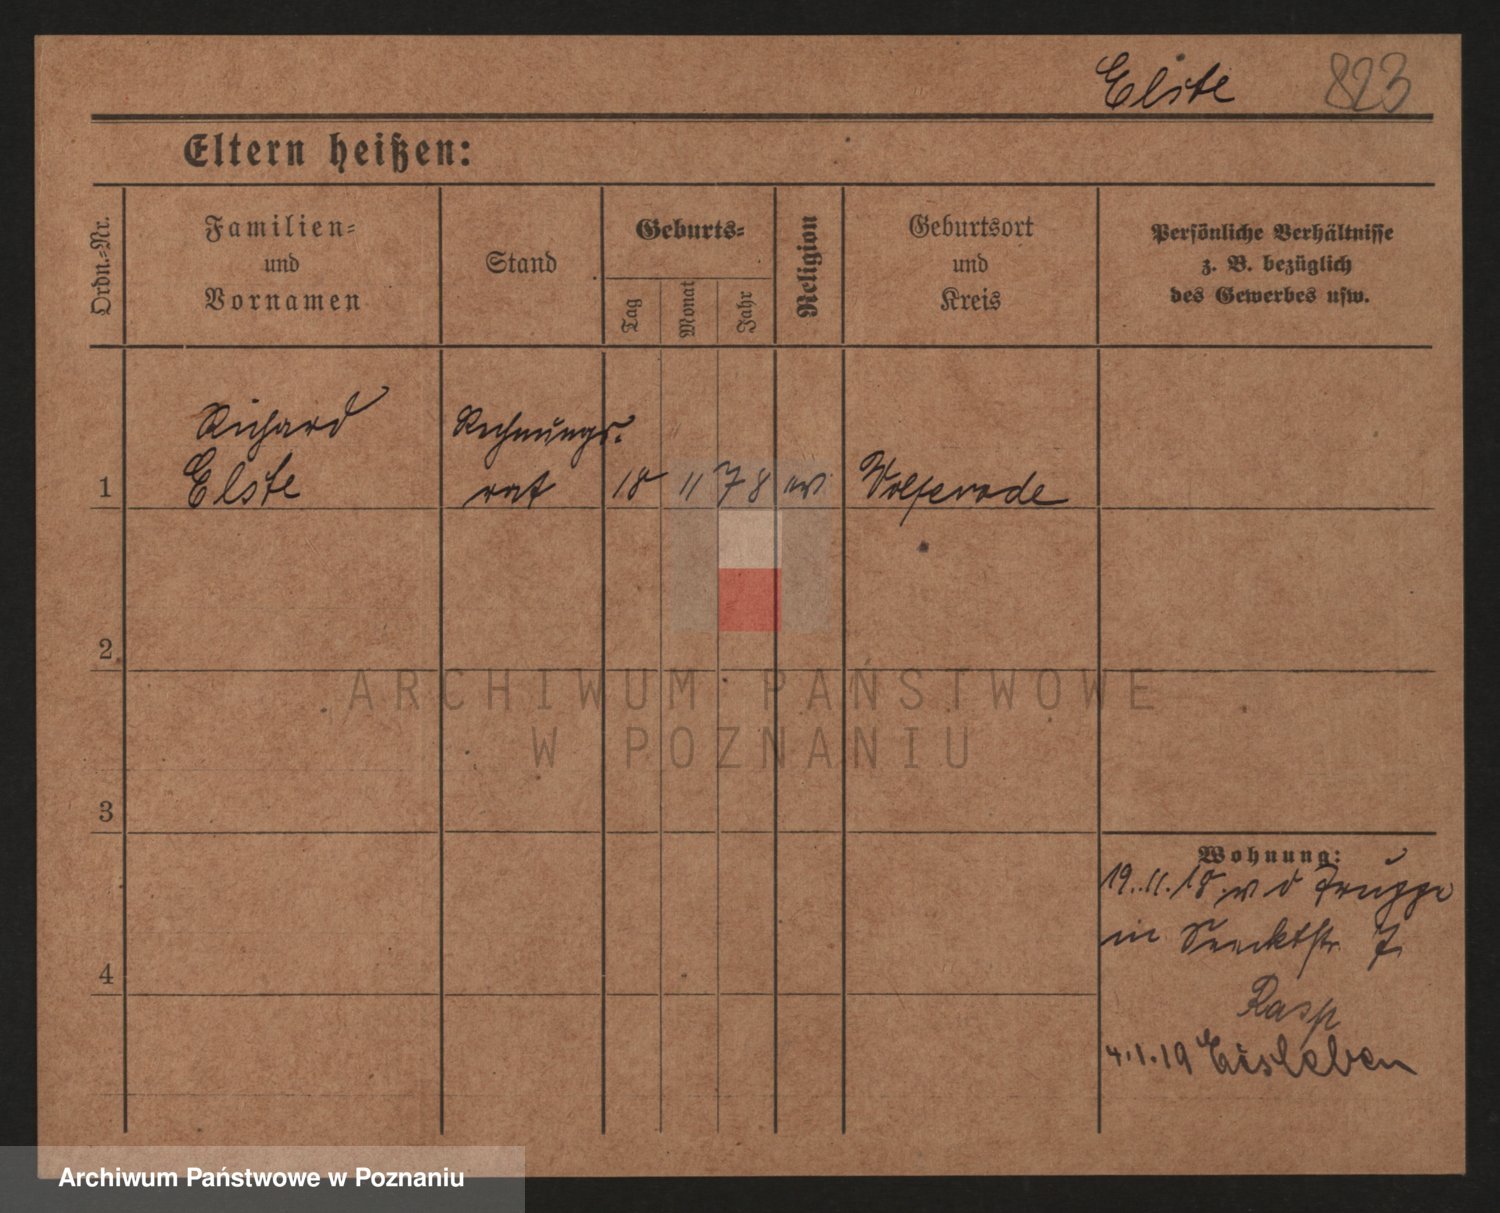 Elste 823
Eltern heißen:
Ordn.-Nr.
Familien-
und
Vornamen
Stand
Geburts-
Tag
Monat
Jahr
Religion
Geburtsort
und
Kreis
Persönliche Verhältnisse
z. B. bezüglich
des Gewerbes usw.
Richard
Elste
Rechnungs.
rat
1
18 11 78 ev
Wolferode
2
3
4
Wohnung:
19.11.18. v d Truppe
in Seecktstr. 7
Rasp
4.1.19 Eisleben
ARCHIWUM PAŃSTWOWE
W POZNANIU
Archiwum Państwowe w Poznaniu